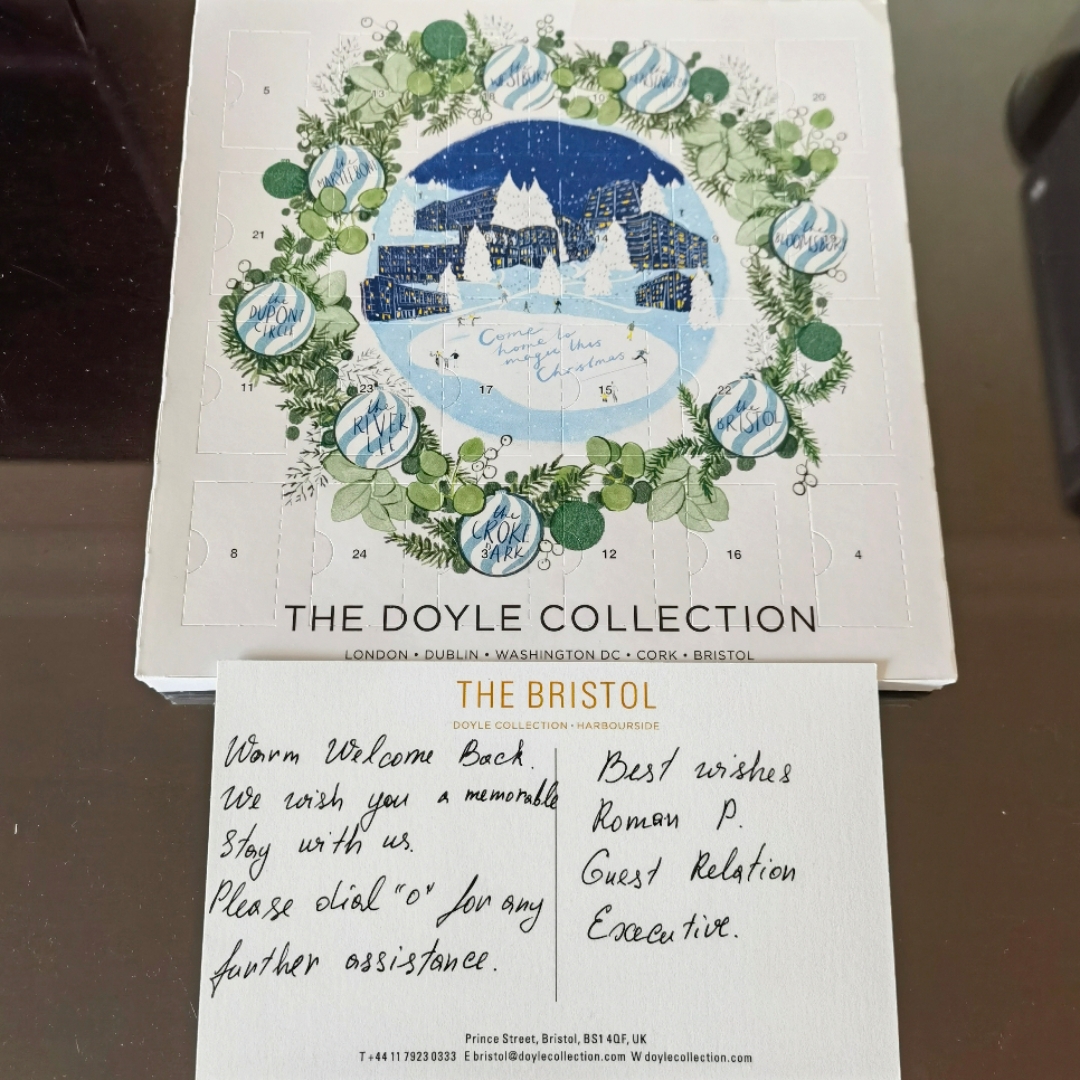 5
13
the
WESTBURY
10
the
20
the
MARYLEBONE
21
1
14
7
9
the
BLOOMSBURY
the
DUPONT
CIRCLE
Come
home to
magic this
Christmas
11
23
17
15
22
7
the
RIVER
LEE
the
BRISTOL
the
CROKE
PARK
8
24
3
12
16
4
THE DOYLE COLLECTION
LONDON • DUBLIN • WASHINGTON DC • CORK • BRISTOL
THE BRISTOL
DOYLE COLLECTION • HARBOURSIDE
Warm Welcome Back.
We wish you a memorable
Stay with us.
Please dial "0" for any
further assistance.
Best wishes
Roman P.
Guest Relation
Executive.
Prince Street, Bristol, BS1 4QF, UK
T +44 11 7923 0333 E bristol@doylecollection.com W doylecollection.com